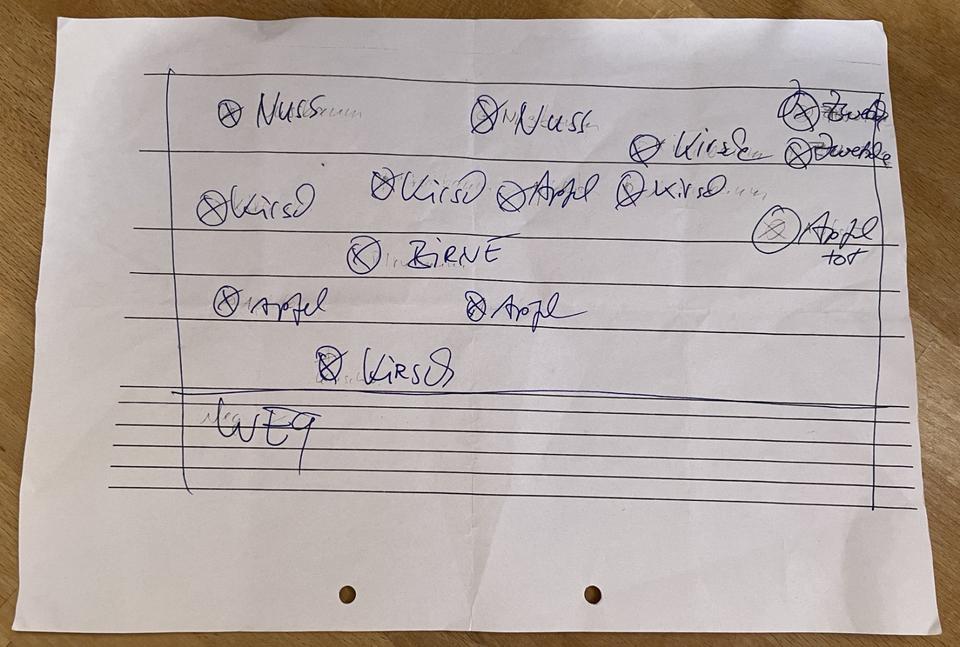 Nuss Nuss Zwetschge
Kirsche Zwetschge
Kirsch Kirsch Apfel Kirsch
Apfel
tot
BiRNE
Apfel Apfel
KiRSch
WEg